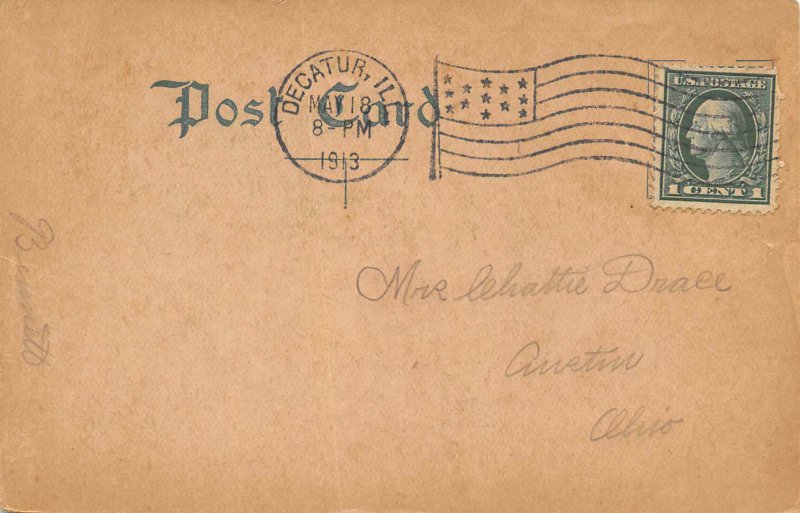 Post Card
DECATUR, ILL
MAY 18
8-PM
1913
U.S. POSTAGE
1 CENT 1
Mrs Chattie Drace
Austin
Ohio